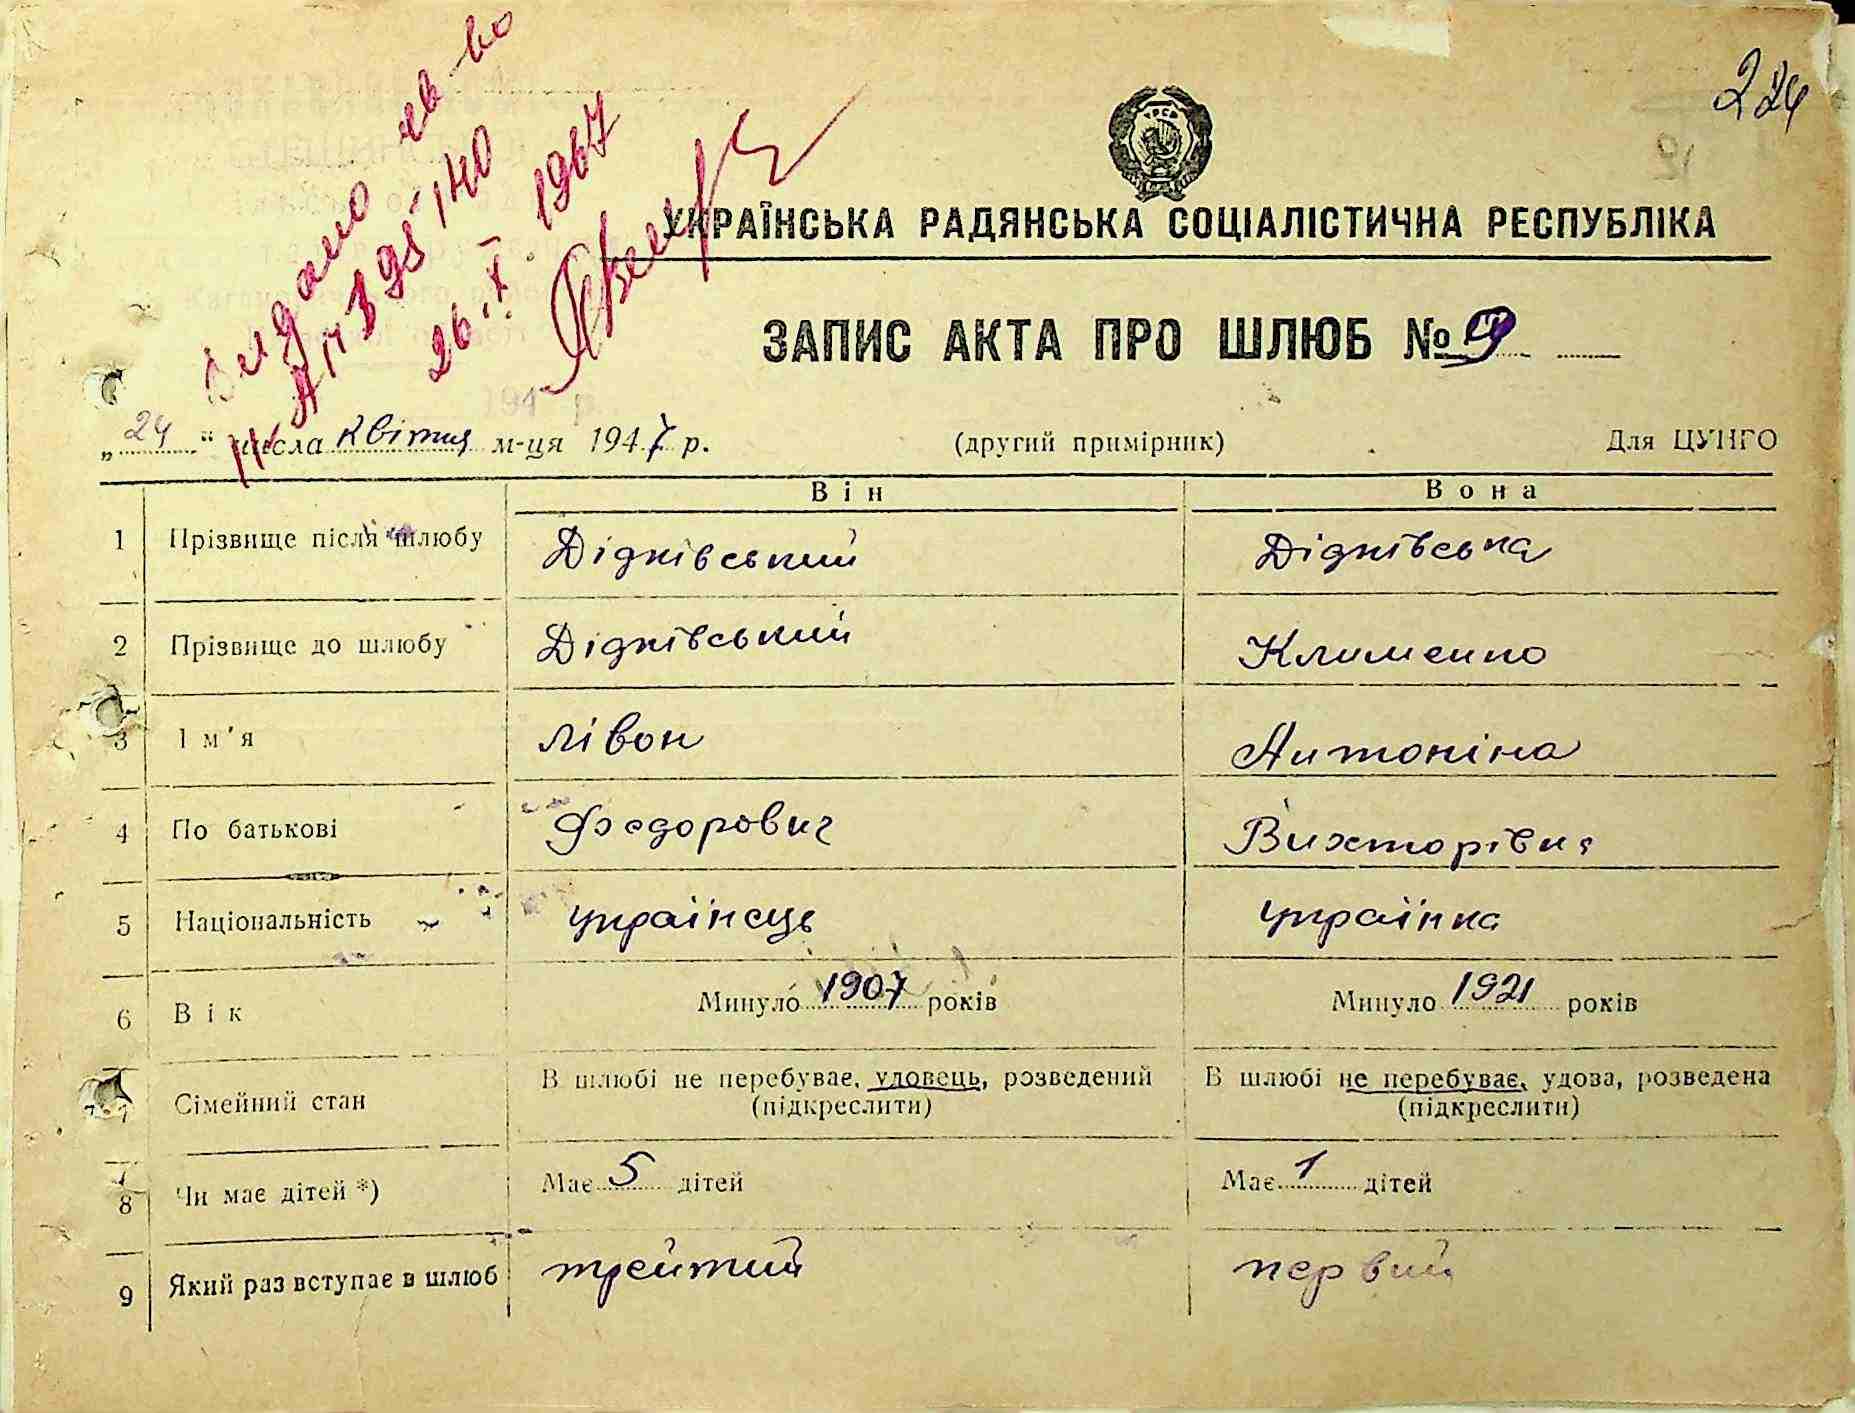 224
Видано св-во
95140
26.X 1967
УКРАЇНСЬКА РАДЯНСЬКА СОЦІАЛІСТИЧНА РЕСПУБЛІКА
ЗАПИС АКТА ПРО ШЛЮБ №
„24“ числа квітня м-ця 1947 р. (другий примірник) Для ЦУНГО
Він Вона
1 Прізвище після шлюбу Дідківський Дідківська
2 Прізвище до шлюбу Дідківський Клименко
3 Ім'я Лівон Антоніна
4 По батькові Фэдорович Вихторівна
5 Національність українець українка
6 Вік Минуло 1907 років Минуло 1921 років
7 Сімейний стан В шлюбі не перебуває, удовець, розведений (підкреслити) В шлюбі не перебуває, удова, розведена (підкреслити)
8 Чи має дітей *) Має 5 дітей Має 1 дітей
9 Який раз вступає в шлюб трейтий первий